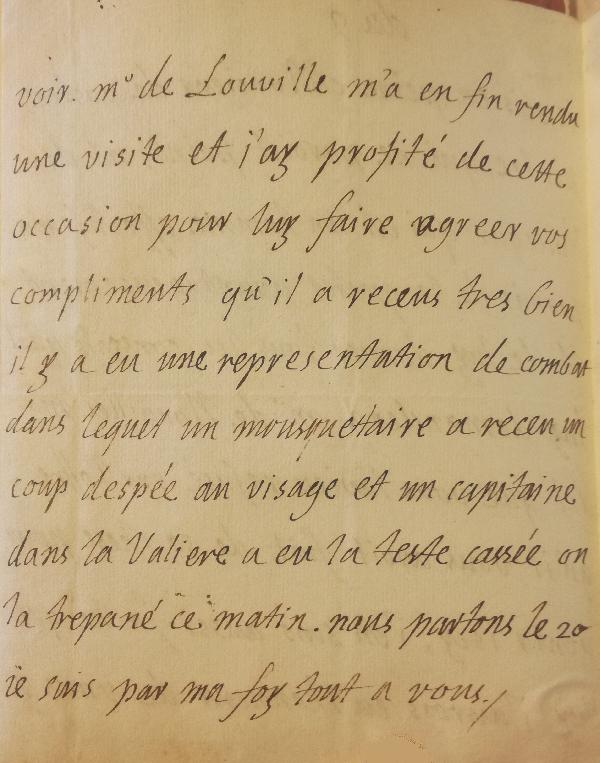 voir. mr de Louville m'a en fin rendu
une visite et j'ay profité de cette
occasion pour luy faire agreer vos
compliments qu'il a receus tres bien
il y a eu une representation de combat
dans lequel un mousquettaire a receu un
coup despée au visage et un capitaine
dans la Valiere a eu la teste cassée on
la trepané ce matin. nous partons le 20
ie suis par ma foy tout a vous./